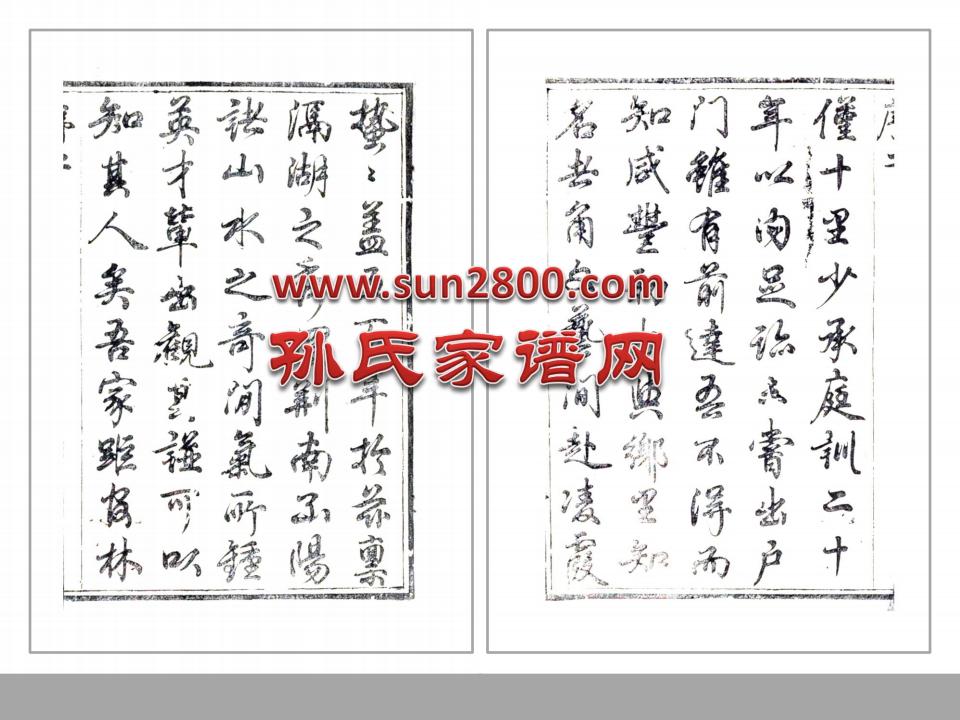 蓋年於茲稟
滆湖之荊南陽
諸山水之奇間氣所鍾
英才輩出觀其譜可以
知其人矣吾家距林
僅十里少承庭訓二十
年以內足跡未嘗出户
門雖有前達吾不得而
知咸豐與鄉里知
名者角藝間赴凌霞
www.sun2800.com
孙氏家谱网